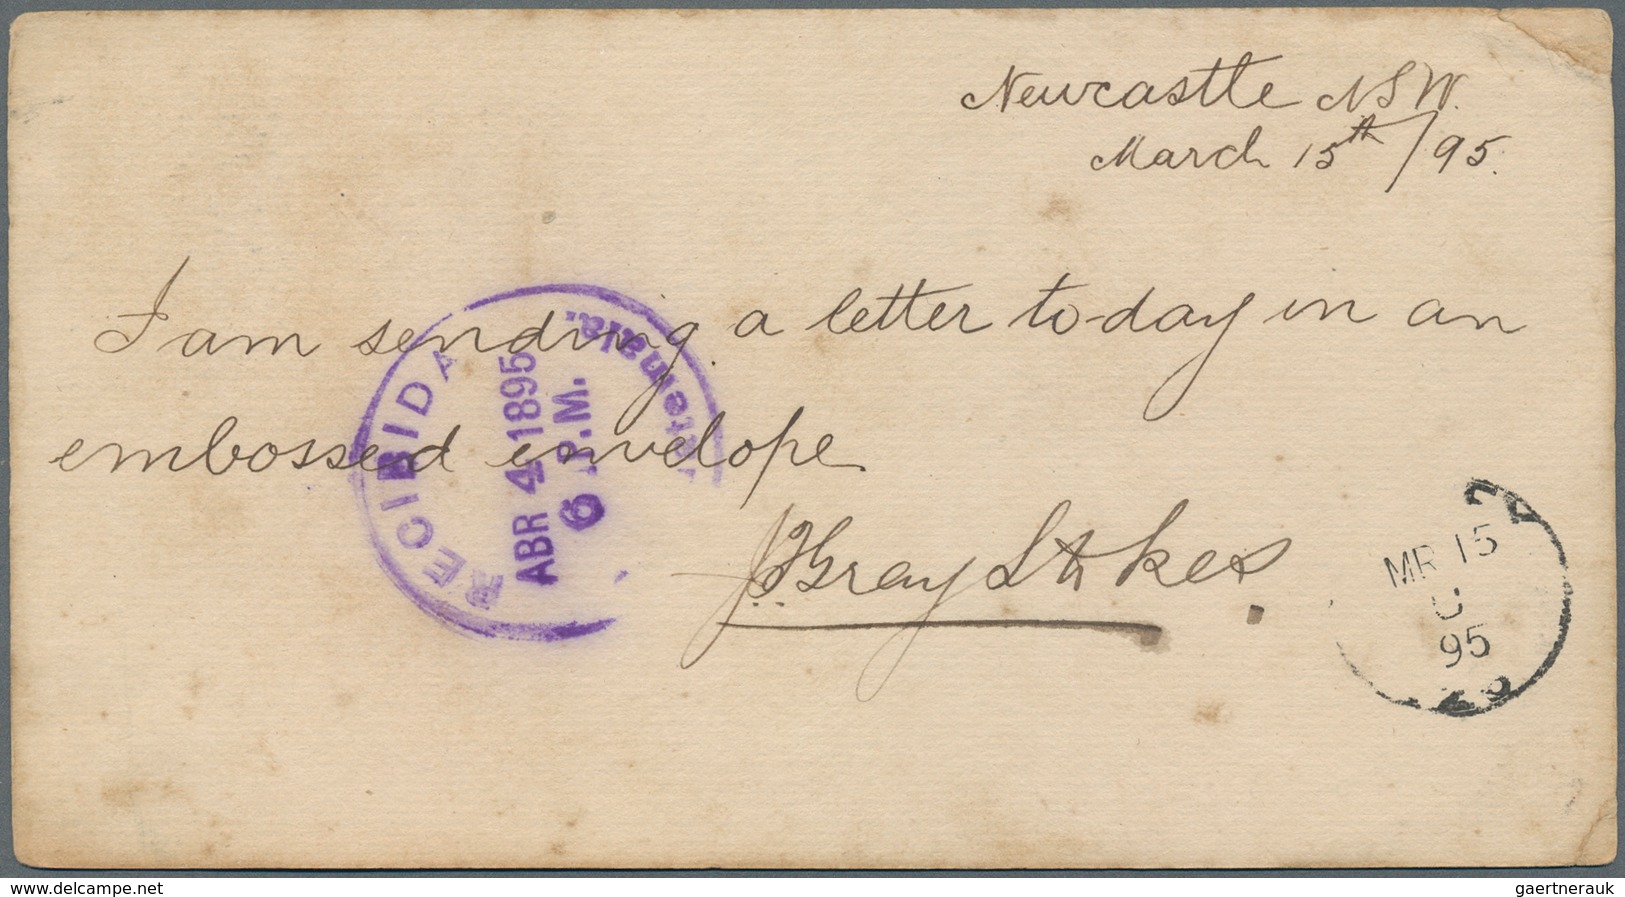 Newcastle NSW.
March 15th/95.
I am sending a letter to-day in an
embossed envelope
Gray Stokes.
RECIBIDA
ABR 4 1895
6 P.M.
MR 15
95
www.delcampe.net
gaertnerauk